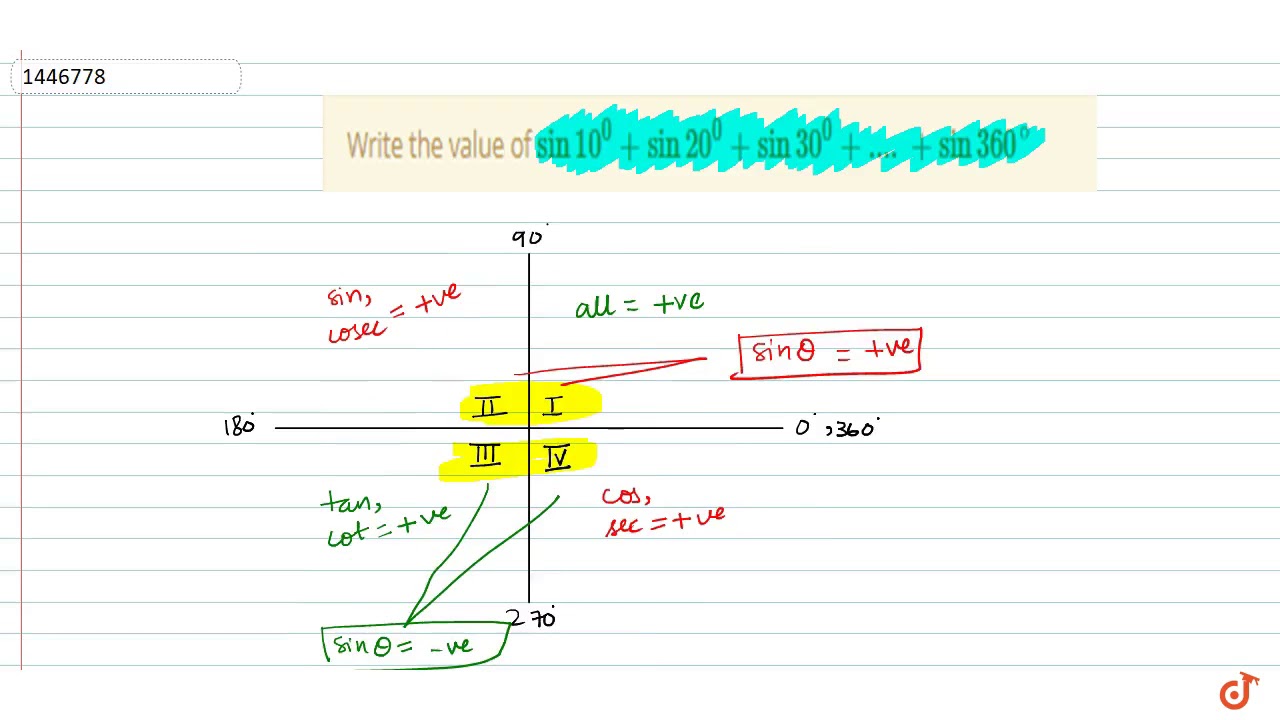 1446778
Write the value of sin 10⁰ + sin 20⁰ + sin 30⁰ + .... + sin 360°
90°
sin,
cosec = +ve
all = +ve
sinθ = +ve
II I
180° 0°, 360°
III IV
tan,
cot = +ve
cos,
sec = +ve
270°
sinθ = -ve